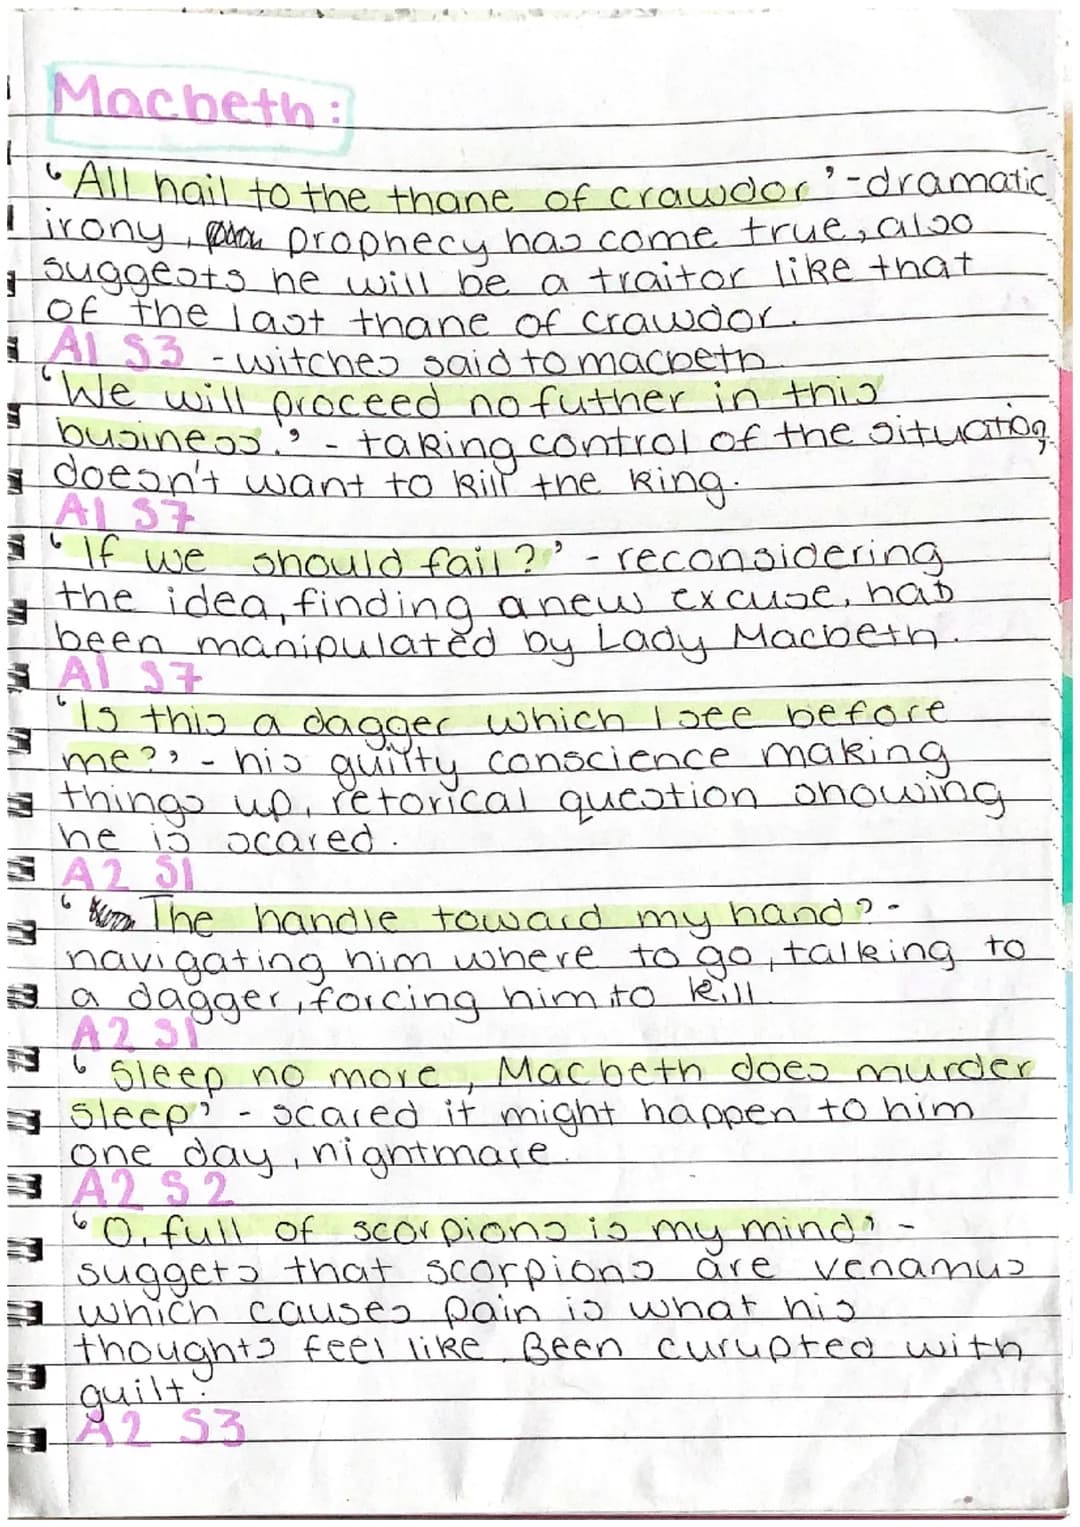 Macbeth:
'All hail to the thane of crawdor' - dramatic
irony, prophecy has come true, also
suggests he will be a traitor like that
of the last thane of crawdor.
A1 S3 - witches said to macbeth
'We will proceed no futher in this
business.' - taking control of the situation
doesn't want to kill the king.
A1 S7
'If we should fail?' - reconsidering
the idea, finding a new excuse, has
been manipulated by Lady Macbeth.
A1 S7
'Is this a dagger which I see before
me?' - his guilty conscience making
things up, retorical question showing
he is scared.
A2 S1
'The handle toward my hand? -
navigating him where to go, talking to
a dagger, forcing him to kill
A2 S1
'Sleep no more, Macbeth does murder
sleep' - scared it might happen to him
one day, nightmare.
A2 S2
'O, full of scorpions is my mind' -
suggets that scorpions are venamus
which causes pain is what his
thoughts feel like. Been curupted with
guilt.
A2 S3